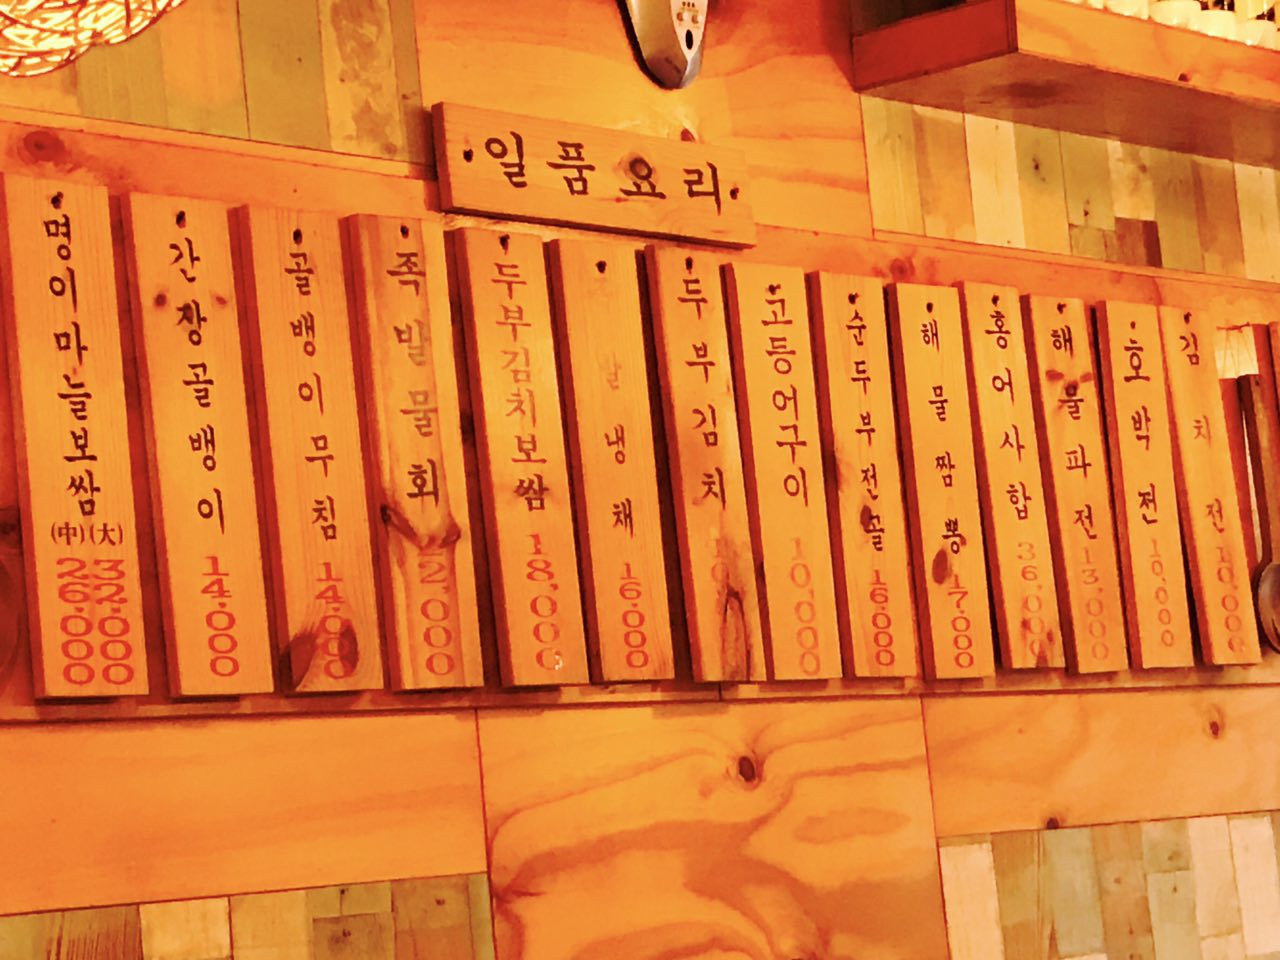 일품요리
명이마늘보쌈 (中) 26.000 (大) 32.000
간장골뱅이 14.000
골뱅이무침 14.000
족발물회 2.000
두부김치보쌈 18.000
냉채 16.000
두부김치
고등어구이 10.000
순두부전골 16.000
해물짬뽕 17.000
홍어사합 36.000
해물파전 13.000
호박전 10.000
김치전 10.000